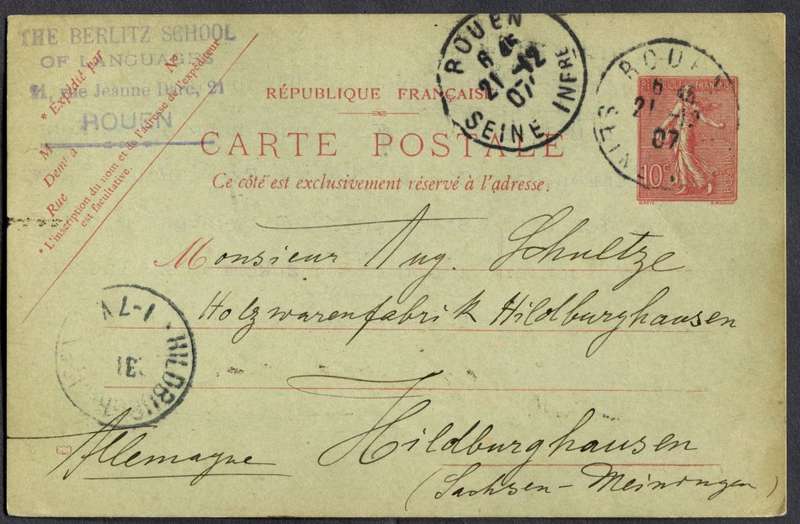 THE BERLITZ SCHOOL
OF LANGUAGES
21, rue Jeanne Darc, 21
ROUEN
* Expédié par
N°
M
Demt à
Rue
* L'inscription du nom et de l'adresse de l'expéditeur
est facultative.
ROUEN
6 45
21 -12
07
SEINE INFRE
ROUEN
6 45
21 -12
07
RÉPUBLIQUE FRANÇAISE
10c
CARTE POSTALE
Ce côté est exclusivement réservé à l'adresse.
Monsieur Aug. Schultze
Holzwarenfabrik Hildburghausen
1-7V
HILDBURGH
Allemagne
Hildburghausen
(Sachsen-Meiningen)